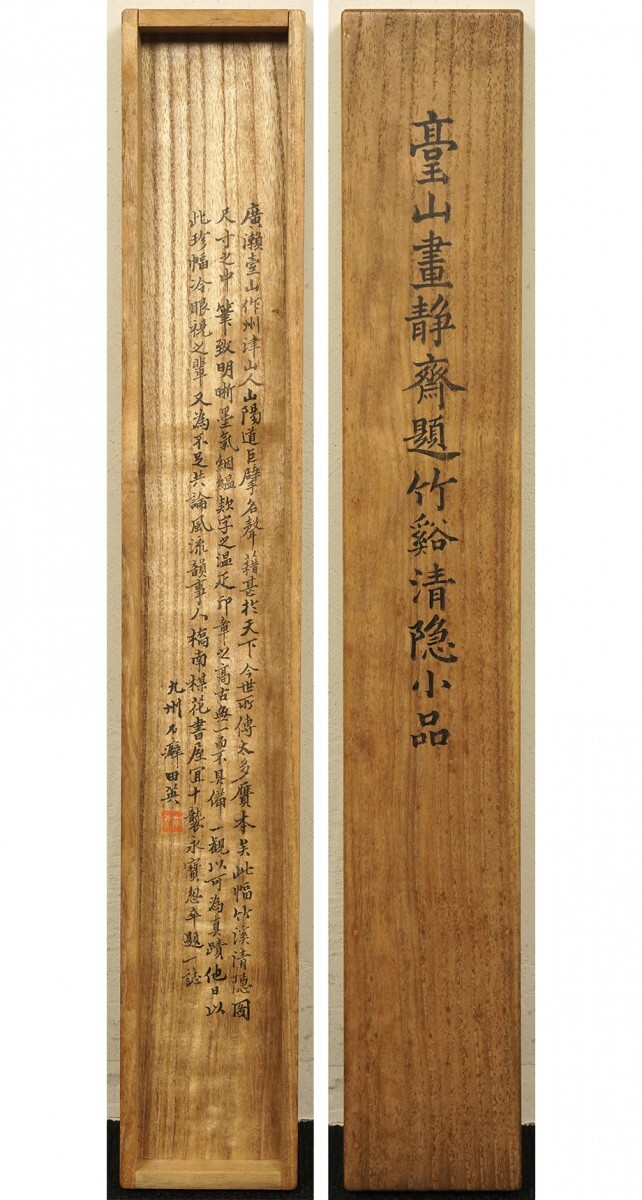 臺山畫静齋題竹谿清隠小品
廣瀬臺山作州津山人山陽道巨擘名聲藉甚於天下今世所傳太多贋本矣此幅竹溪清隠圖
尺寸之中筆致明晰墨氣絪縕款字之温疋印章之高古無一而不具備一観以可為真蹟他日以
此珍幅冷眼視之輩又為不足共論風流韻事人槁南楳花書屋宜十襲永寳怱卒題一誌
九州石癖田英